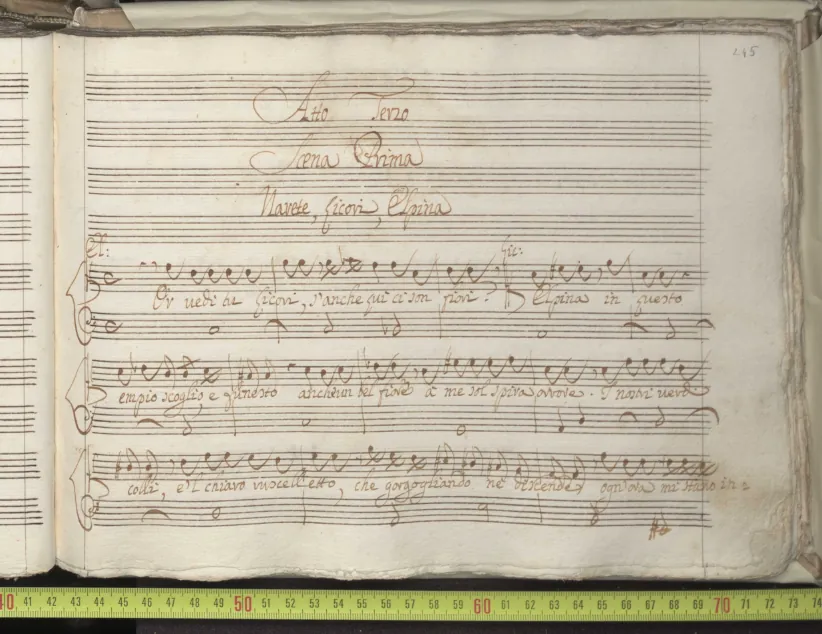 245
Atto Terzo
Scena Prima
Navete, Licori, Elpina
El: Lic:
Or vedi tu Licori, s'anche qui ci son fiori? Elpina in questo
empio scoglio, e funesto anche un bel fiore à me sol spira orrore. I nostri verdi
colli, e'l chiaro ruscelletto, che gorgogliando ne discende, ogn'ora mi stano in=
40 41 42 43 44 45 46 47 48 49 50 51 52 53 54 55 56 57 58 59 60 61 62 63 64 65 66 67 68 69 70 71 72 73 74